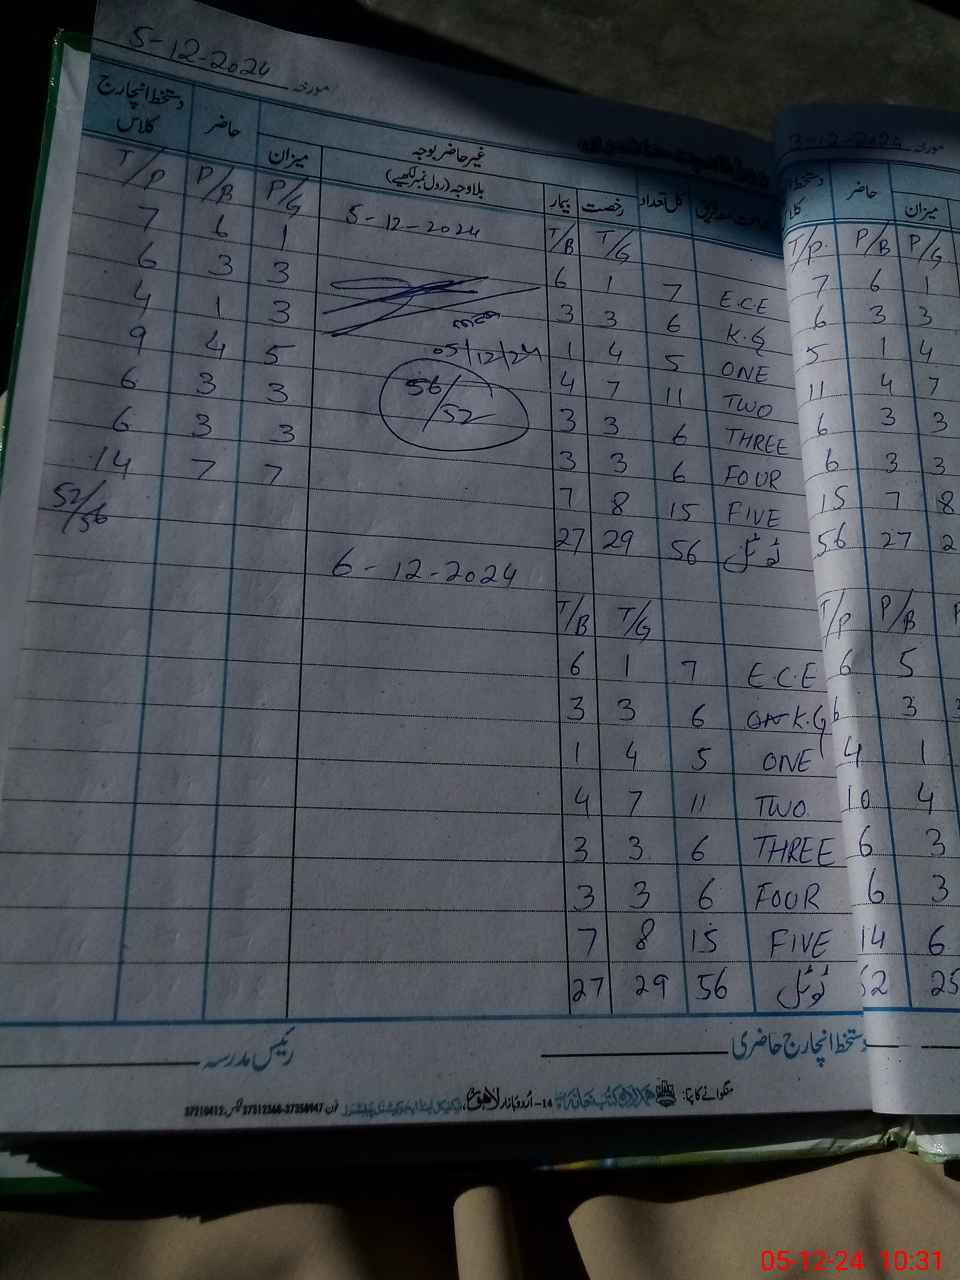 5-12-2024 مورخہ
دستخط انچارج کلاس حاضر میزان غیر حاضر بوجہ
بلا وجہ (رول نمبر لکھیے) بیمار رخصت کل تعداد
T/P P/B P/G 5-12-2024 T/B T/G
7 6 1 6 1 7 E.C.E
6 3 3 3 3 6 K.G
4 1 3 1 4 5 ONE
05/12/24
9 4 5 4 7 11 TWO
56/52
6 3 3 3 3 6 THREE
6 3 3 3 3 6 FOUR
14 7 7 7 8 15 FIVE
52/56 27 29 56 ٹوٹل
6-12-2024
T/B T/G
6 1 7 E.C.E
3 3 6 K.G
1 4 5 ONE
4 7 11 TWO
3 3 6 THREE
3 3 6 FOUR
7 8 15 FIVE
27 29 56 ٹوٹل
رئیس مدرسہ دستخط انچارج حاضری
منگوانے کا پتا: 14-اُردو بازار لاہور
مورخہ 3-12-2024
حاضر میزان
T/P P/B P/G
7 6 1
6 3 3
5 1 4
11 4 7
6 3 3
6 3 3
15 7 8
56 27 2
T/P P/B P
6 5
6 3 3
4 1
10 4
6 3
6 3
14 6
52 25
05-12-24 10:31